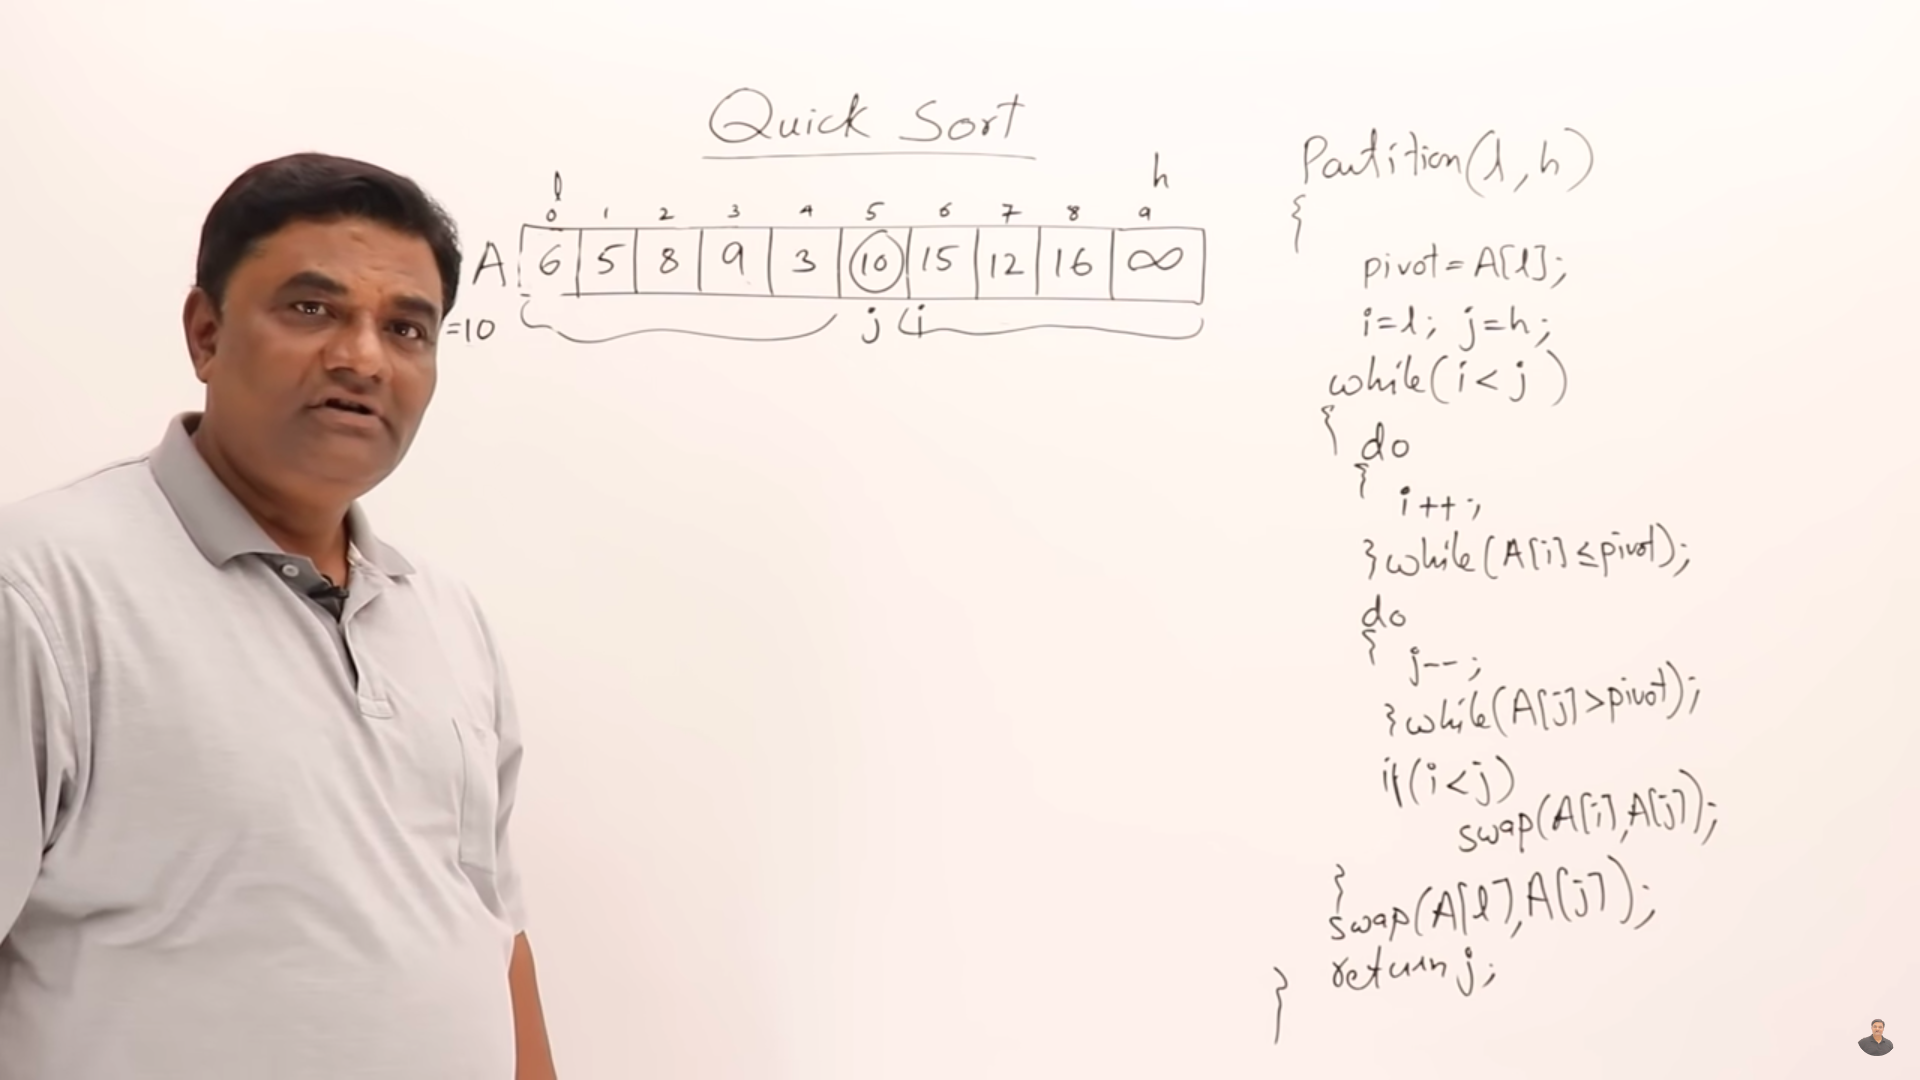 Quick Sort
l h
0 1 2 3 4 5 6 7 8 9
A 6 5 8 9 3 10 15 12 16 ∞
=10 j i
Partition(l,h)
{
pivot=A[l];
i=l; j=h;
while(i<j)
{ do
{
i++;
}while(A[i]≤pivot);
do
{ j--;
}while(A[j]>pivot);
if(i<j)
swap(A[i],A[j]);
}
swap(A[l],A[j]);
return j;
}